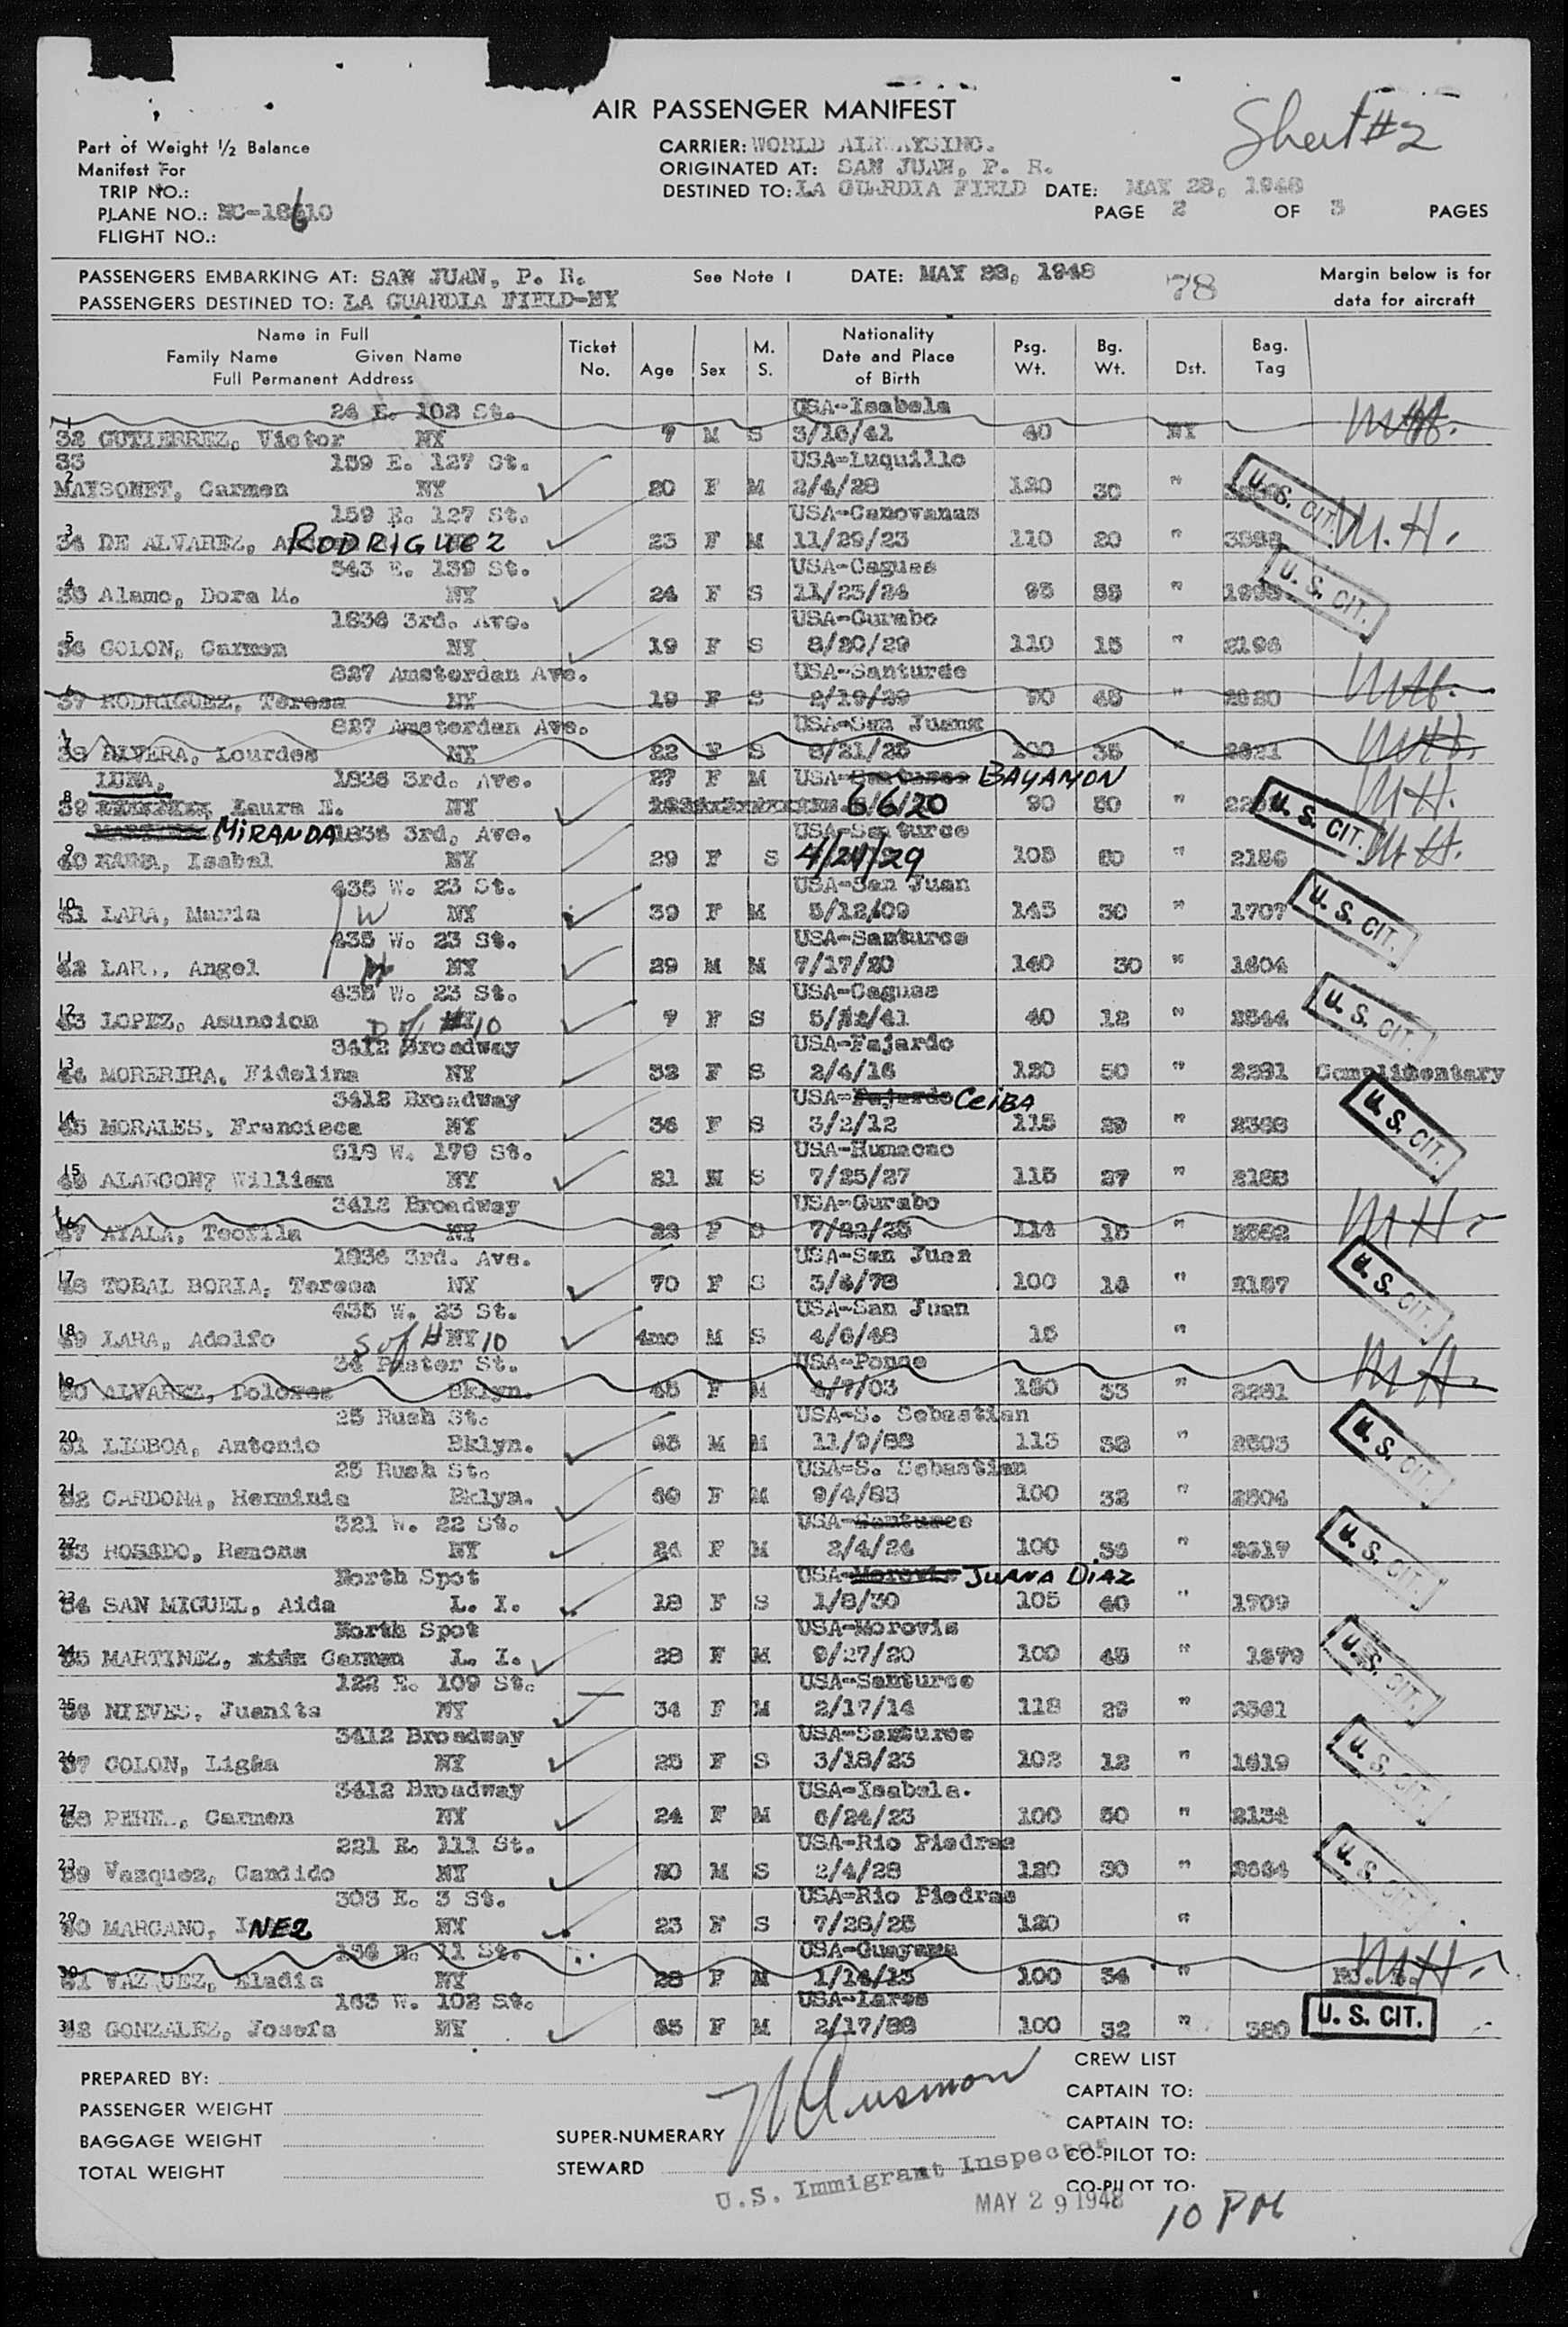 AIR PASSENGER MANIFEST
Sheet #2
Part of Weight ½ Balance
Manifest For
TRIP NO.:
PLANE NO.: NC-18610
FLIGHT NO.:
CARRIER: WORLD AIRWAYSINC.
ORIGINATED AT: SAN JUAN, P. R.
DESTINED TO: LA GUARDIA FIELD DATE: MAY 28, 1948
PAGE 2 OF 3 PAGES
PASSENGERS EMBARKING AT: SAN JUAN, P. R. See Note 1 DATE: MAY 28, 1948 78 Margin below is for
PASSENGERS DESTINED TO: LA GUARDIA FIELD-NY data for aircraft
Name in Full
Family Name Given Name
Full Permanent Address
Ticket No. Age Sex M. S. Nationality Date and Place of Birth Psg. Wt. Bg. Wt. Dst. Bag. Tag
24 E. 102 St. USA-Isabela
1 32 GUTIERREZ, Victor NY 7 M S 3/16/41 40 NY MH.
33 159 E. 127 St. USA-Luquillo
2 MAYSONET, Carmen NY 20 F M 2/4/28 120 30 " U. S. CIT.
159 E. 127 St. USA-Canovanas
3 34 DE ALVAREZ, RODRIGUEZ 23 F M 11/29/23 110 20 " M.H.
543 E. 139 St. USA-Caguas
4 35 Alamo, Dora M. NY 24 F S 11/23/24 95 35 " U. S. CIT.
1836 3rd. Ave. USA-Gurabo
5 36 COLON, Carmen NY 19 F S 8/20/29 110 15 " 2196
827 Amsterdan Ave. USA-Santurde
6 37 RODRIGUEZ, Teresa NY 19 F S 2/19/29 90 45 " MH.
827 Amsterdan Ave. USA-San Juan
7 38 RIVERA, Lourdes NY 22 F S 8/21/25 100 35 " 2621 MH.
LUNA, 1836 3rd. Ave. 27 F M USA- BAYAMON
8 39 Laura E. NY 6/6/20 90 50 " U. S. CIT. MH.
MIRANDA 1836 3rd. Ave. USA-Santurce
9 40 Isabel NY 29 F S 4/24/29 105 60 " 2186 MH.
435 W. 23 St. USA-San Juan
10 41 LARA, Maria W NY 39 F M 5/12/09 145 30 " 1707 U. S. CIT.
435 W. 23 St. USA-Santurce
11 42 LAR., Angel NY 29 M M 7/17/20 140 30 " 1604
435 W. 23 St. USA-Caguas
12 43 LOPEZ, Asuncion D of #10 7 F S 5/12/41 40 12 " 2544 U. S. CIT.
3412 Broadway USA-Fajardo
13 44 MORERIRA, Fidelina NY 32 F S 2/4/16 120 50 " 2291 Complimentary
3412 Broadway USA-Fajardo CEIBA
14 45 MORALES, Francisca NY 36 F S 3/2/12 115 29 " U. S. CIT.
619 W. 179 St. USA-Humacao
15 46 ALARCON, William NY 21 M S 7/25/27 115 27 " 2183
3412 Broadway USA-Gurabo
16 47 AYALA, Teofila NY 22 F S 7/22/25 114 15 " MH.
1836 3rd. Ave. USA-San Juan
17 48 TOBAL BORIA, Teresa NY 70 F S 3/4/78 100 14 " 2187 U. S. CIT.
435 W. 23 St. USA-San Juan
18 49 LARA, Adolfo S of #NY10 4mo M S 4/6/48 15 "
34 Paster St. USA-Ponce
19 50 ALVAREZ, Dolores Bklyn. 45 F M 4/7/03 130 33 " 2281 MH
25 Rush St. USA-S. Sebastian
20 51 LISBOA, Antonio Bklyn. M M 11/9/88 113 38 " 2603 U. S. CIT.
25 Rush St. USA-S. Sebastian
21 52 CARDONA, Herminia Bklyn. F M 9/4/83 100 32 " 2604
321 W. 22 St. USA-Santurce
22 53 ROSADO, Ramona NY 24 F M 2/4/24 100 36 " 2617 U. S. CIT.
North Spot USA-Morovis JUANA DIAZ
23 54 SAN MIGUEL, Aida L. I. 18 F S 1/8/30 105 40 " 1709
North Spot USA-Morovis
24 55 MARTINEZ, Carmen L. I. 28 F M 9/27/20 100 45 " 1679 U. S. CIT.
122 E. 109 St. USA-Santurce
25 56 NIEVES, Juanita NY 34 F M 2/17/14 118 29 " 2361
3412 Broadway USA-Santurce
26 57 COLON, Ligia NY 25 F S 3/18/23 102 12 " 1619 U. S. CIT.
3412 Broadway USA-Isabela.
27 58 PERE., Carmen NY 24 F M 6/24/23 100 50 " 2134
221 E. 111 St. USA-Rio Piedras
28 59 Vazquez, Candido NY 20 M S 2/4/28 120 30 " 2664 U. S. CIT.
303 E. 3 St. USA-Rio Piedras
29 60 MARCANO, INEZ NY 23 F S 7/28/25 120 "
136 E. 11 St. USA-Guayama
30 61 VAZQUEZ, Eladia NY 28 F M 1/14/15 100 34 " MH.
163 W. 102 St. USA-Lares
31 62 GONZALEZ, Josefa NY 65 F M 2/17/88 100 32 " 380 U. S. CIT.
PREPARED BY:
PASSENGER WEIGHT
BAGGAGE WEIGHT
TOTAL WEIGHT
SUPER-NUMERARY
STEWARD
U.S. Immigrant Inspector
MAY 29 1948
CREW LIST
CAPTAIN TO:
CAPTAIN TO:
CO-PILOT TO:
CO-PILOT TO:
10 PM